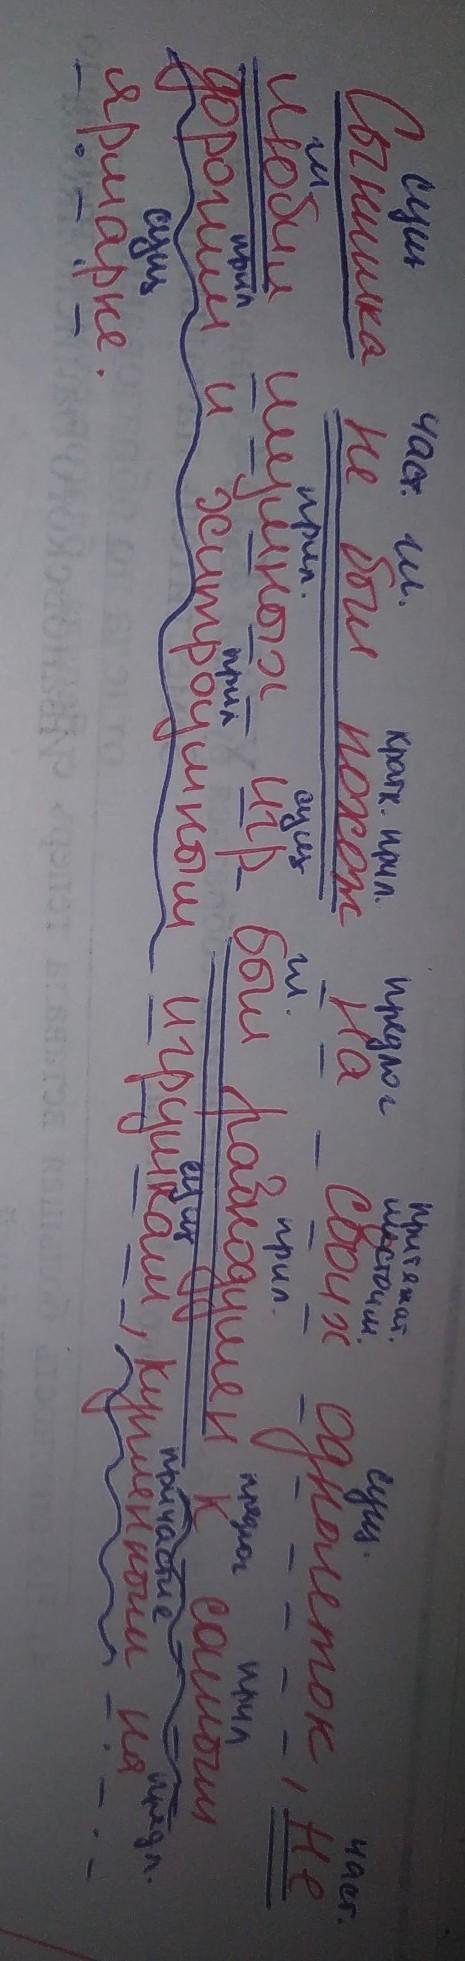 сущ част. гл. кратк. прил. предлог притяжат. местоим. сущ. част.
Сынишка не был похож на своих однолеток, не
гл прил. сущ гл. прил. предлог прил
любил шумных игр был равнодушен к самым
прил прил сущ причастие предл.
дорогим и хитроумным игрушкам, купленным на
сущ
ярмарке.